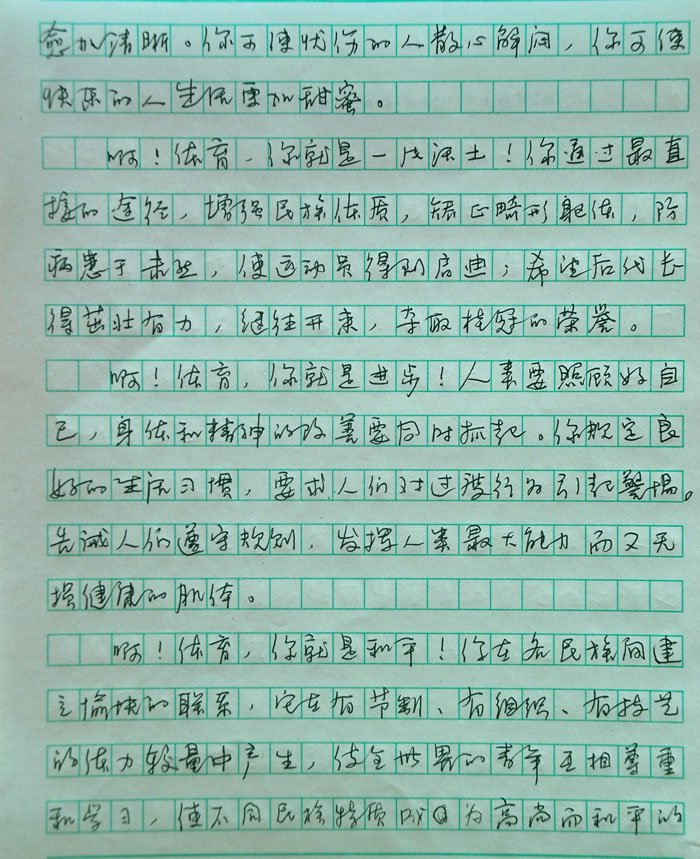 愈加清晰。你可使忧伤的人散心解闷，你可使
快乐的人生活更加甜蜜。
啊！体育，你就是一片沃土！你通过最直
接的途径，增强民族体质，矫正畸形躯体，防
病患于未然，使运动员得到启迪，希望后代长
得茁壮有力，继往开来，夺取桂冠的荣誉。
啊！体育，你就是进步！人类要照顾好自
己，身体和精神的改善要同时抓起。你规定良
好的生活习惯，要求人们对过度行为引起警惕。
告诫人们遵守规则，发挥人类最大能力而又无
损健康的肌体。
啊！体育，你就是和平！你在各民族间建
立愉快的联系，它在有节制、有组织、有技艺
的体力较量中产生，使全世界的青年互相尊重
和学习，使不同民族特质成为高尚而和平的